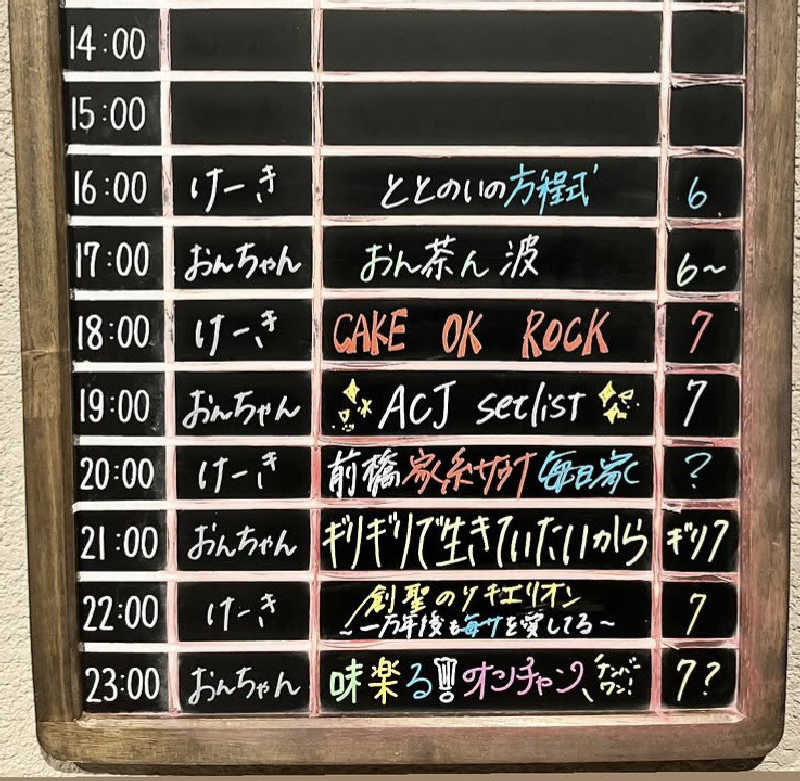 14:00
15:00
16:00 けーき ととのいの方程式 6
17:00 おんちゃん おん茶ん波 6~
18:00 けーき CAKE OK ROCK 7
19:00 おんちゃん ACJ setlist 7
20:00 けーき 前橋家系サウナ毎日家く ?
21:00 おんちゃん ギリギリで生きていたいから ギリ7
22:00 けーき 創聖のソチエリオン 7
~一万年後も毎サを愛してる~
23:00 おんちゃん 味楽る!!! オンチャン、ナンバーワン! 7?